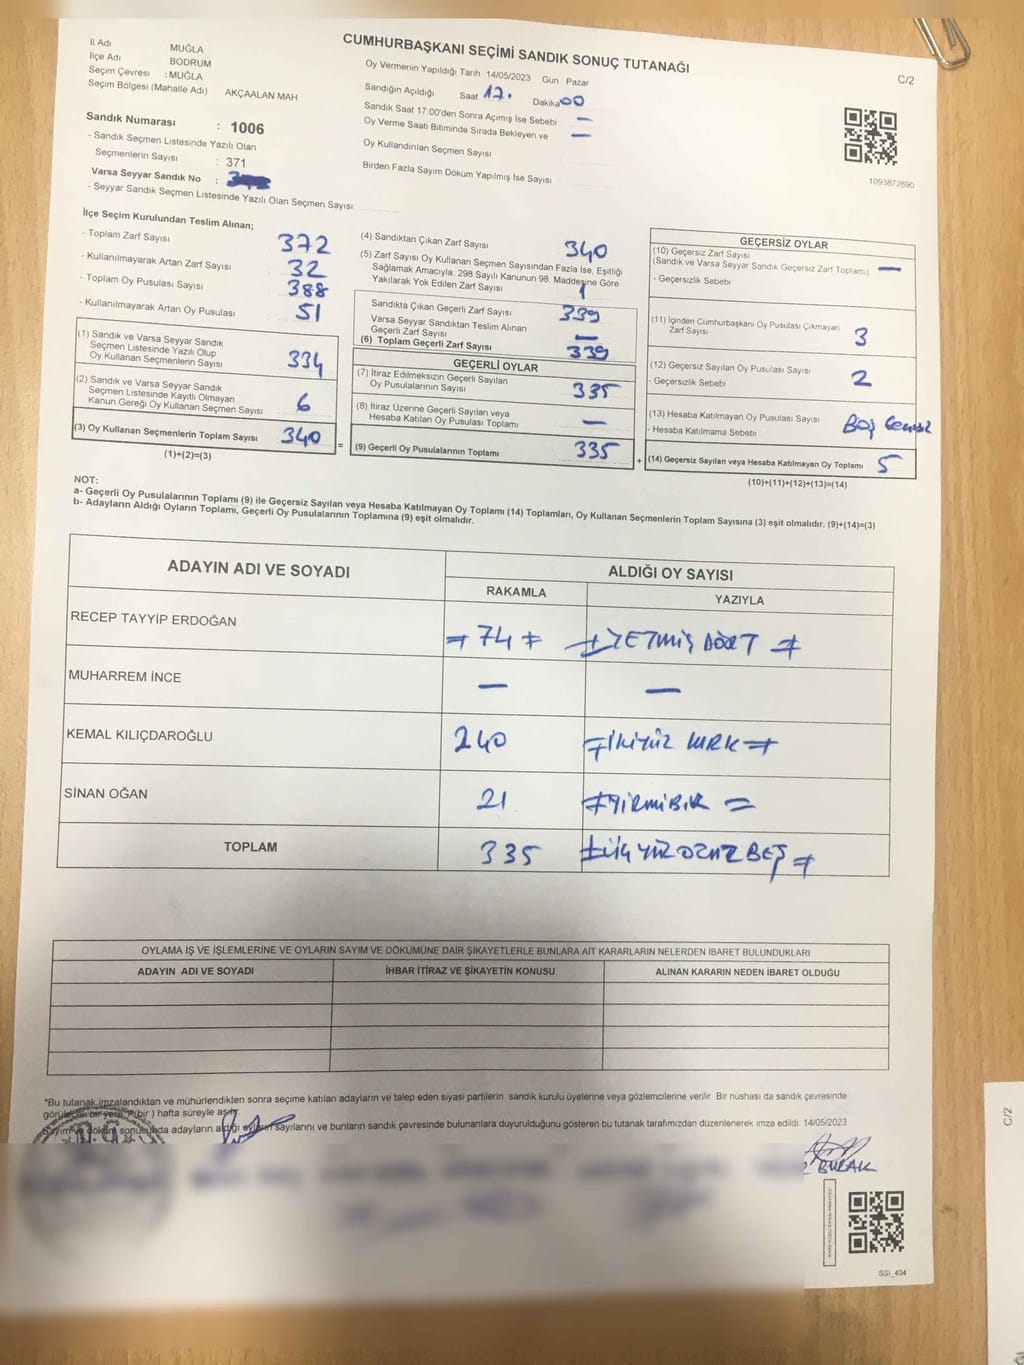 CUMHURBAŞKANI SEÇİMİ SANDIK SONUÇ TUTANAĞI
C/2
İl Adı MUĞLA
İlçe Adı BODRUM
Seçim Çevresi : MUĞLA
Seçim Bölgesi (Mahalle Adı) AKÇAALAN MAH.
Oy Vermenin Yapıldığı Tarih 14/05/2023 Gün Pazar
Sandığın Açıldığı Saat 17. Dakika 00
Sandık Saat 17:00'den Sonra Açımış İse Sebebi —
Oy Verme Saati Bitiminde Sırada Bekleyen ve —
Oy Kullandırılan Seçmen Sayısı
Birden Fazla Sayım Döküm Yapılmış İse Sayısı
1093872690
Sandık Numarası : 1006
- Sandık Seçmen Listesinde Yazılı Olan
Seçmenlerin Sayısı : 371
Varsa Seyyar Sandık No :
- Seyyar Sandık Seçmen Listesinde Yazılı Olan Seçmen Sayısı
İlçe Seçim Kurulundan Teslim Alınan;
- Toplam Zarf Sayısı 372
- Kullanılmayarak Artan Zarf Sayısı 32
- Toplam Oy Pusulası Sayısı 388
- Kullanılmayarak Artan Oy Pusulası 51
(1) Sandık ve Varsa Seyyar Sandık
Seçmen Listesinde Yazılı Olup
Oy Kullanan Seçmenlerin Sayısı 334
(2) Sandık ve Varsa Seyyar Sandık
Seçmen Listesinde Kayıtlı Olmayan
Kanun Gereği Oy Kullanan Seçmen Sayısı 6
(3) Oy Kullanan Seçmenlerin Toplam Sayısı 340
(1)+(2)=(3)
=
(4) Sandıktan Çıkan Zarf Sayısı 340
(5) Zarf Sayısı Oy Kullanan Seçmen Sayısından Fazla İse, Eşitliği
Sağlamak Amacıyla, 298 Sayılı Kanunun 98. Maddesine Göre
Yakılarak Yok Edilen Zarf Sayısı 1
Sandıkta Çıkan Geçerli Zarf Sayısı 339
Varsa Seyyar Sandıktan Teslim Alınan
Geçerli Zarf Sayısı —
(6) Toplam Geçerli Zarf Sayısı 339
GEÇERLİ OYLAR
(7) İtiraz Edilmeksizin Geçerli Sayılan
Oy Pusulalarının Sayısı 335
(8) İtiraz Üzerine Geçerli Sayılan veya
Hesaba Katılan Oy Pusulası Toplamı —
(9) Geçerli Oy Pusulalarının Toplamı 335
+
GEÇERSİZ OYLAR
(10) Geçersiz Zarf Sayısı
(Sandık ve Varsa Seyyar Sandık Geçersiz Zarf Toplamı) —
- Geçersizlik Sebebi
(11) İçinden Cumhurbaşkanı Oy Pusulası Çıkmayan
Zarf Sayısı 3
(12) Geçersiz Sayılan Oy Pusulası Sayısı 2
- Geçersizlik Sebebi
(13) Hesaba Katılmayan Oy Pusulası Sayısı Boş
- Hesaba Katılmama Sebebi
(14) Geçersiz Sayılan veya Hesaba Katılmayan Oy Toplamı 5
(10)+(11)+(12)+(13)=(14)
NOT:
a- Geçerli Oy Pusulalarının Toplamı (9) ile Geçersiz Sayılan veya Hesaba Katılmayan Oy Toplamı (14) Toplamları, Oy Kullanan Seçmenlerin Toplam Sayısına (3) eşit olmalıdır. (9)+(14)=(3)
b- Adayların Aldığı Oyların Toplamı, Geçerli Oy Pusulalarının Toplamına (9) eşit olmalıdır.
ADAYIN ADI VE SOYADI
ALDIĞI OY SAYISI
RAKAMLA YAZIYLA
RECEP TAYYİP ERDOĞAN = 74 = = YETMİŞ DÖRT =
MUHARREM İNCE — —
KEMAL KILIÇDAROĞLU 240 = İKİYÜZ KIRK =
SİNAN OĞAN 21 = YİRMİBİR =
TOPLAM 335 = ÜÇ YÜZ OTUZ BEŞ =
OYLAMA İŞ VE İŞLEMLERİNE VE OYLARIN SAYIM VE DÖKÜMÜNE DAİR ŞİKAYETLERLE BUNLARA AİT KARARLARIN NELERDEN İBARET BULUNDUKLARI
ADAYIN ADI VE SOYADI İHBAR İTİRAZ VE ŞİKAYETİN KONUSU ALINAN KARARIN NEDEN İBARET OLDUĞU
*Bu tutanak imzalandıktan ve mühürlendikten sonra seçime katılan adayların ve talep eden siyasi partilerin sandık kurulu üyelerine veya gözlemcilerine verilir. Bir nüshası da sandık çevresinde
görülecek bir yere 7(bir) hafta süreyle asılır.
Sayım ve döküm sonucunda adayların aldığı oyların sayılarını ve bunların sandık çevresinde bulunanlara duyurulduğunu gösteren bu tutanak tarafımızdan düzenlenerek imza edildi. 14/05/2023
BURAK
SSI_404
C/2